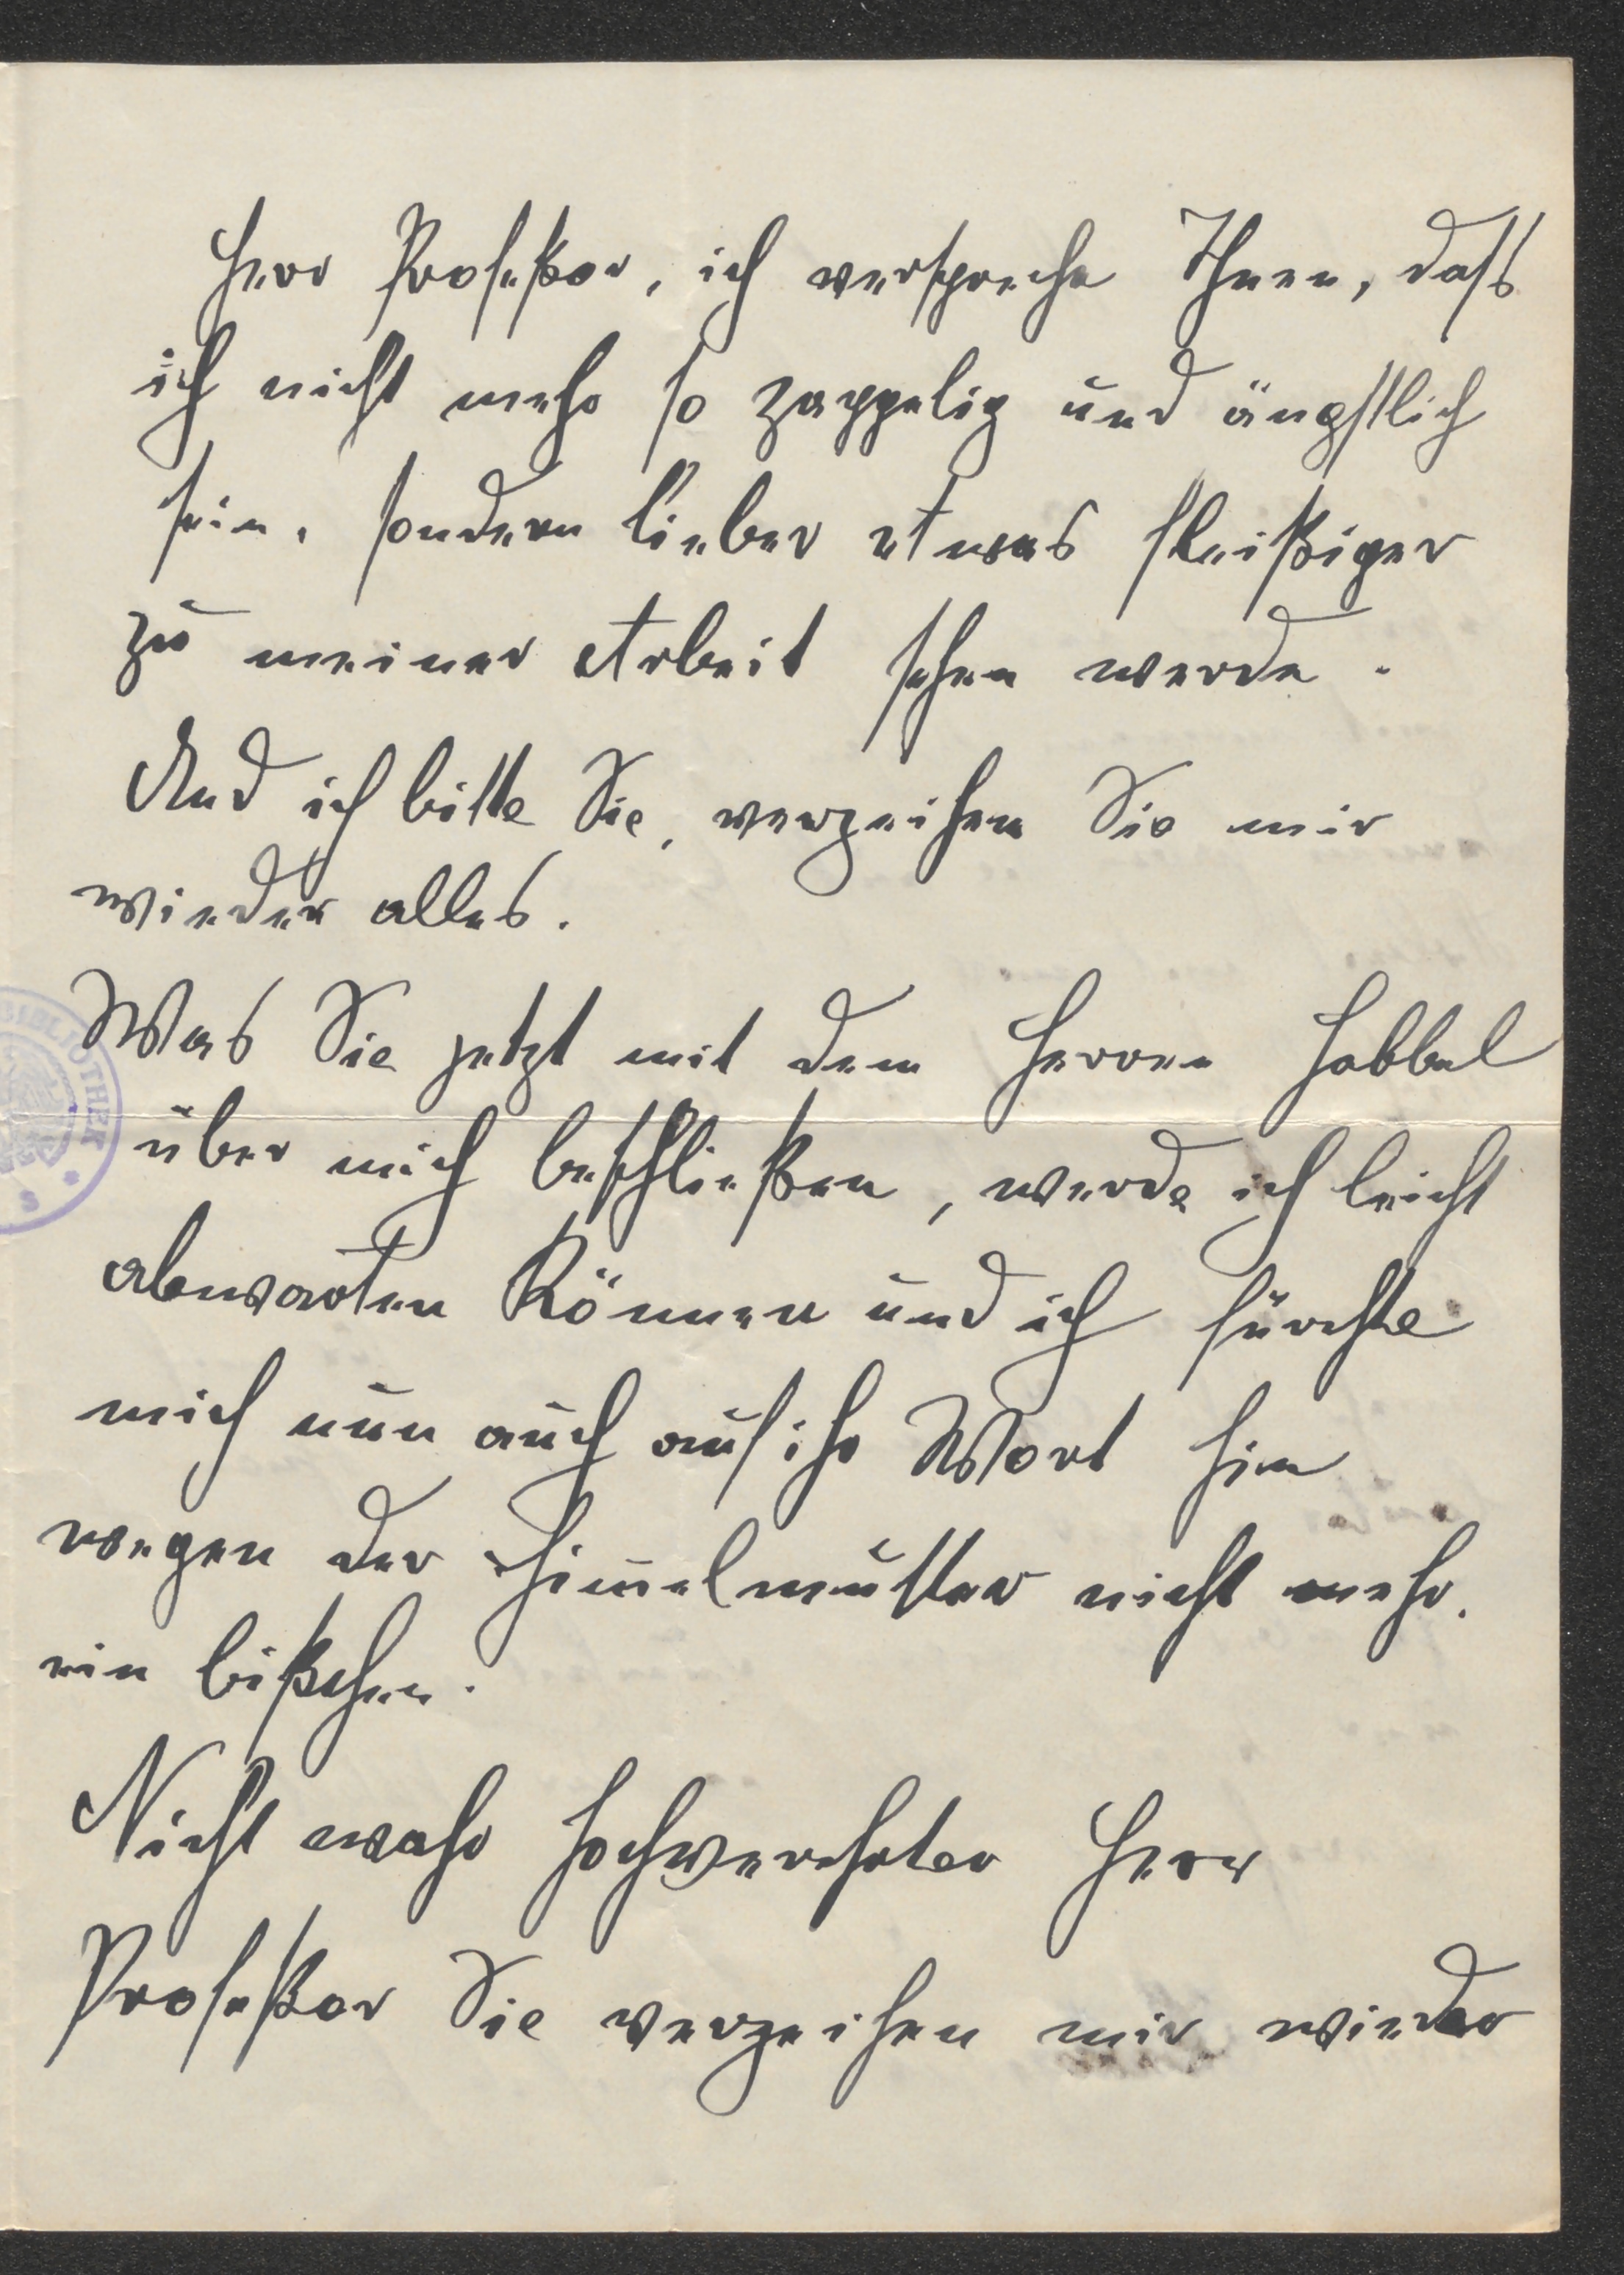 Herr Profeßor, ich verspreche Ihnen, dass
ich nicht mehr so zappelig und ängstlich
sein, sondern lieber etwas fleißiger
zu meiner Arbeit sehen werde.
Und ich bitte Sie, verzeihen Sie mir
wieder alles.
Was Sie jetzt mit dem Herren Habbel
über mich beschließen, werde ich leicht
abwarten können und ich fürchte
mich nun auch auf ihr Wort hin
wegen der Himelmutter nicht mehr,
ein bißchen.
Nicht wahr hochverehrter Herr
Profeßor Sie verzeihen mir wieder
BIBLIOTHEK